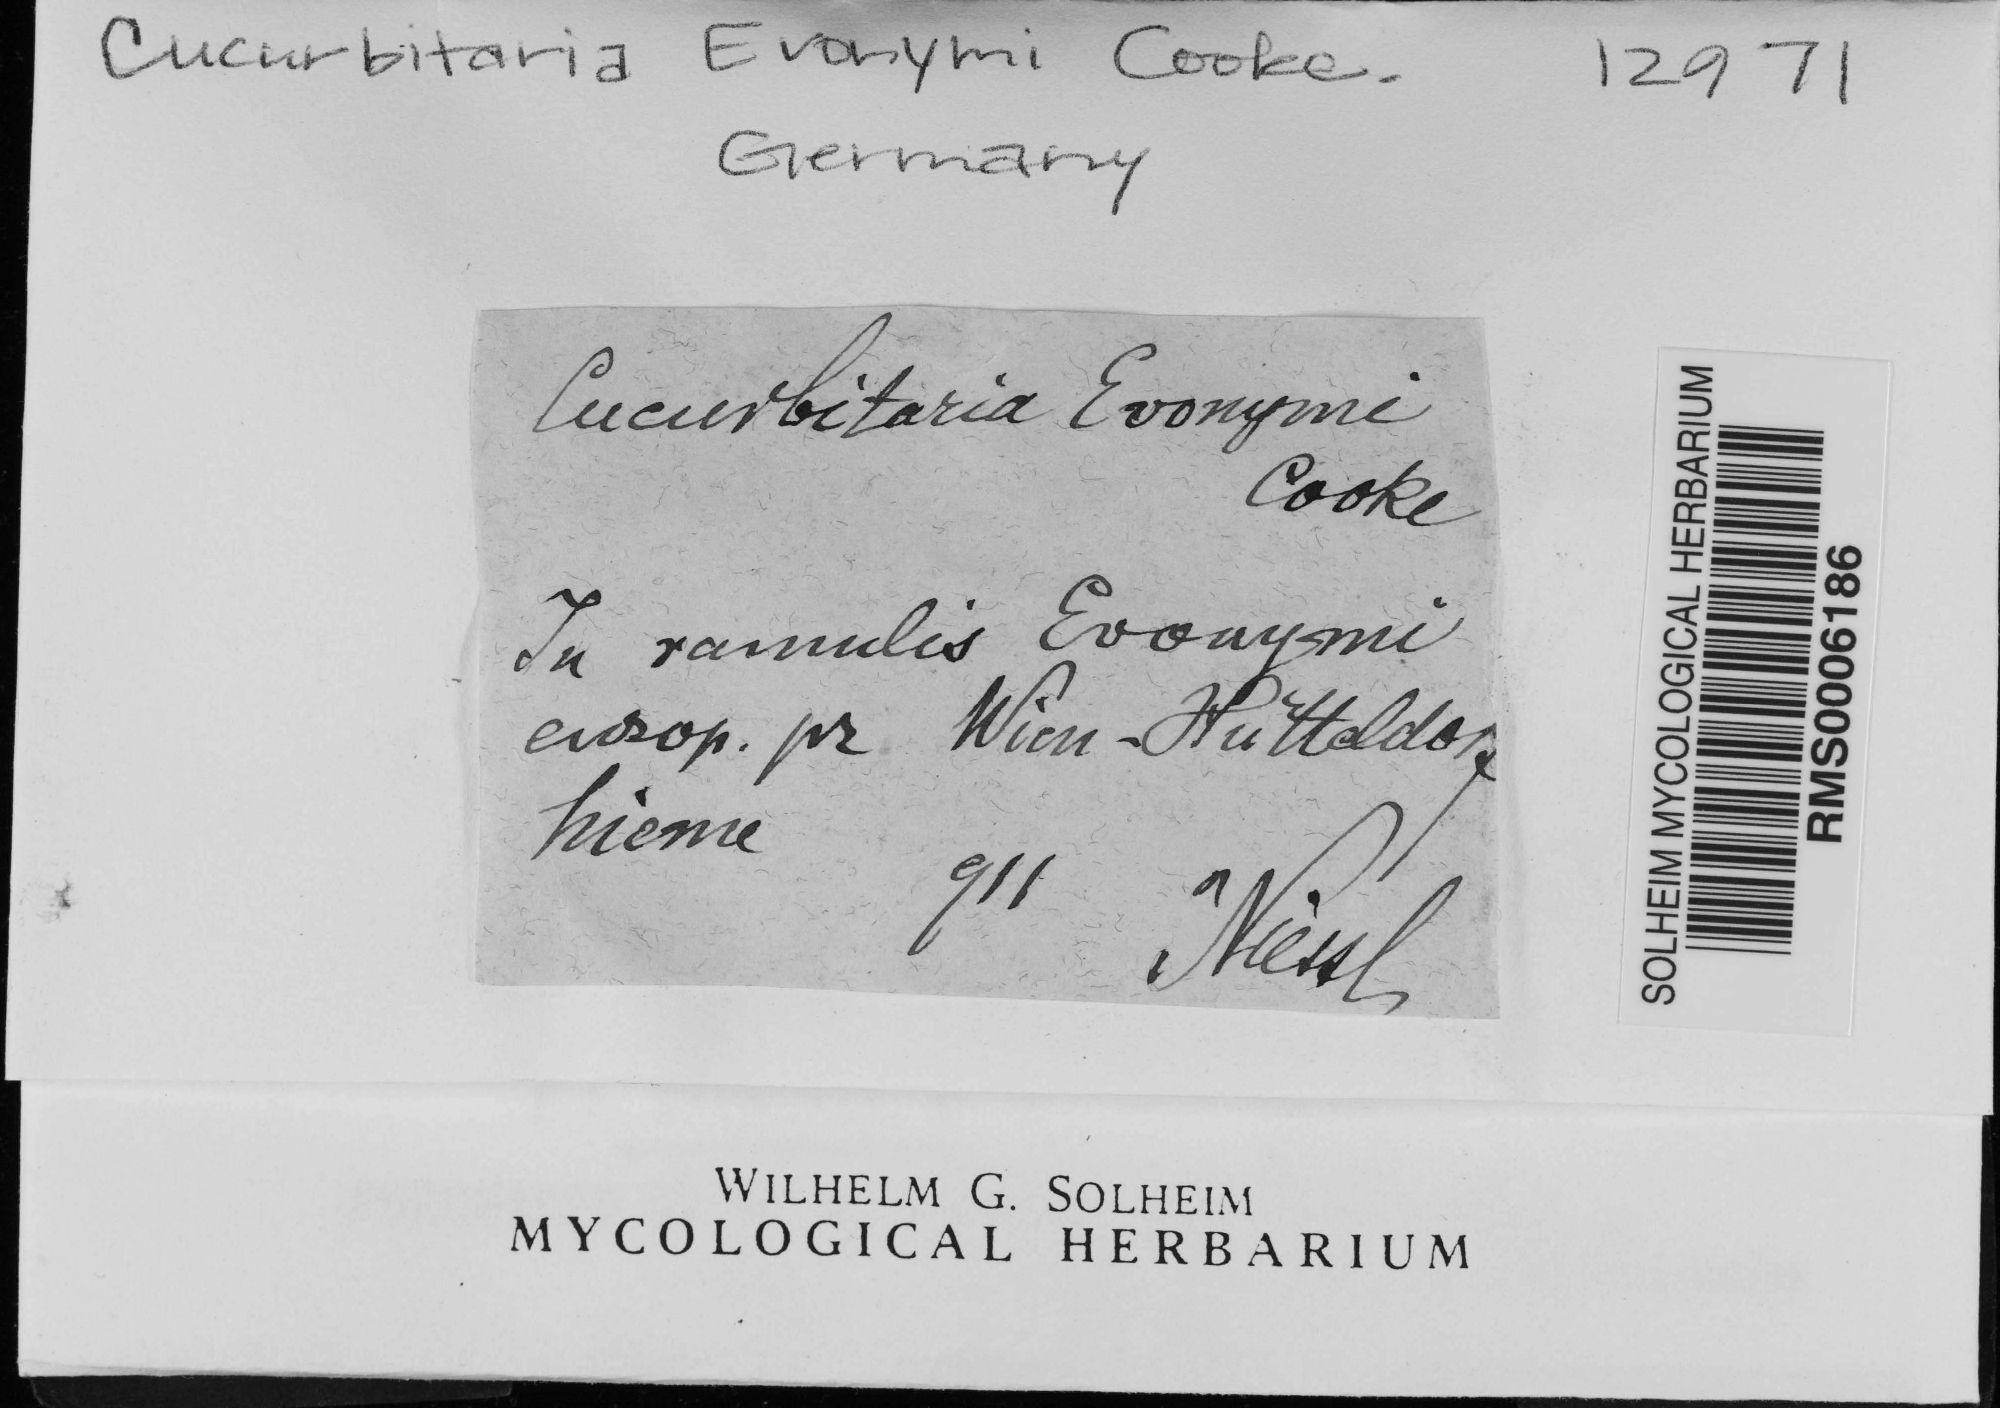 Cucurbitaria Evonymi Cooke. 12971
Germany
Cucurbitaria Evonymi
Cooke
In ramulis Evonymi
europ. pr Wien-Hütteldorf
hieme
911 Niessl
SOLHEIM MYCOLOGICAL HERBARIUM
RMS0006186
WILHELM G. SOLHEIM
MYCOLOGICAL HERBARIUM